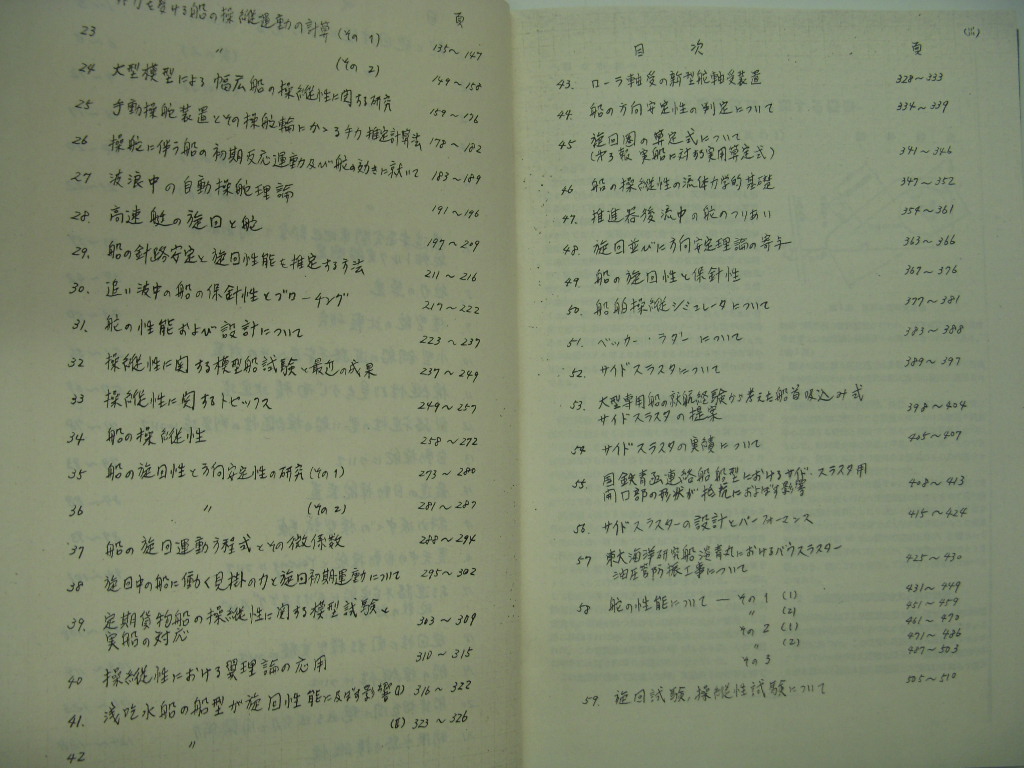 外力を受ける船の操縦運動の計算 (その1) 頁
23 〃 (その2) 135〜147
24 大型模型による幅広船の操縦性に関する研究 149〜158
25 手動操舵装置とその操舵輪にかゝる手力推定計算法 159〜176
26 操舵に伴う船の初期反応運動及び舵の効きに就いて 178〜182
27 波浪中の自動操舵理論 183〜189
28. 高速艇の旋回と舵 191〜196
29. 船の針路安定と旋回性能を推定する方法 197〜209
30. 追い波中の船の保針性とブローチング 211〜216
31. 舵の性能および設計について 217〜222
32 操縦性に関する模型船試験と最近の成果 223〜237
33 操縦性に関するトピックス 237〜249
34 船の操縦性 249〜257
35 船の旋回性と方向安定性の研究 (その1) 258〜272
36 〃 (その2) 273〜280
37 船の旋回運動方程式とその微係数 281〜287
38 旋回中の船に働く見掛の力と旋回初期運動について 288〜294
39. 定期貨物船の操縦性に関する模型試験と 295〜302
実船の対応 303〜309
40 操縦性における翼理論の応用 310〜315
41. 浅吃水船の船型が旋回性能に及ぼす影響(I) 316〜322
42 〃 (II) 323〜326
目次 頁
43. ローラ軸受の新型舵軸受装置 328〜333
44. 船の方向安定性の判定について 334〜339
45 旋回圏の算定式について
(かる数 実船に対する実用算定式) 341〜346
46 船の操縦性の流体力学的基礎 347〜352
47. 推進器後流中の舵のつりあい 354〜361
48. 旋回並びに方向安定理論の寄与 363〜366
49. 船の旋回性と保針性 367〜376
50. 船舶操縦シミュレータについて 377〜381
51. ベッカー・ラダーについて 383〜388
52. サイドスラスタについて 389〜397
53. 大型専用船の就航経験から考えた船首吸込み式
サイドスラスタの提案 398〜404
54 サイドスラスタの実績について 405〜407
55. 国鉄青函連絡船船型におけるサイド・スラスタ用
開口部の形状が抵抗におよぼす影響 408〜413
56. サイドスラスターの設計とパーフォーマンス 415〜424
57 東大海洋研究船淡青丸におけるバウスラスター
油圧管防振工事について 425〜430
58 舵の性能について — その1 (1) 431〜449
〃 (2) 451〜459
その2 (1) 461〜470
〃 (2) 471〜486
その3 487〜503
59. 旋回試験,操縦性試験について 505〜510